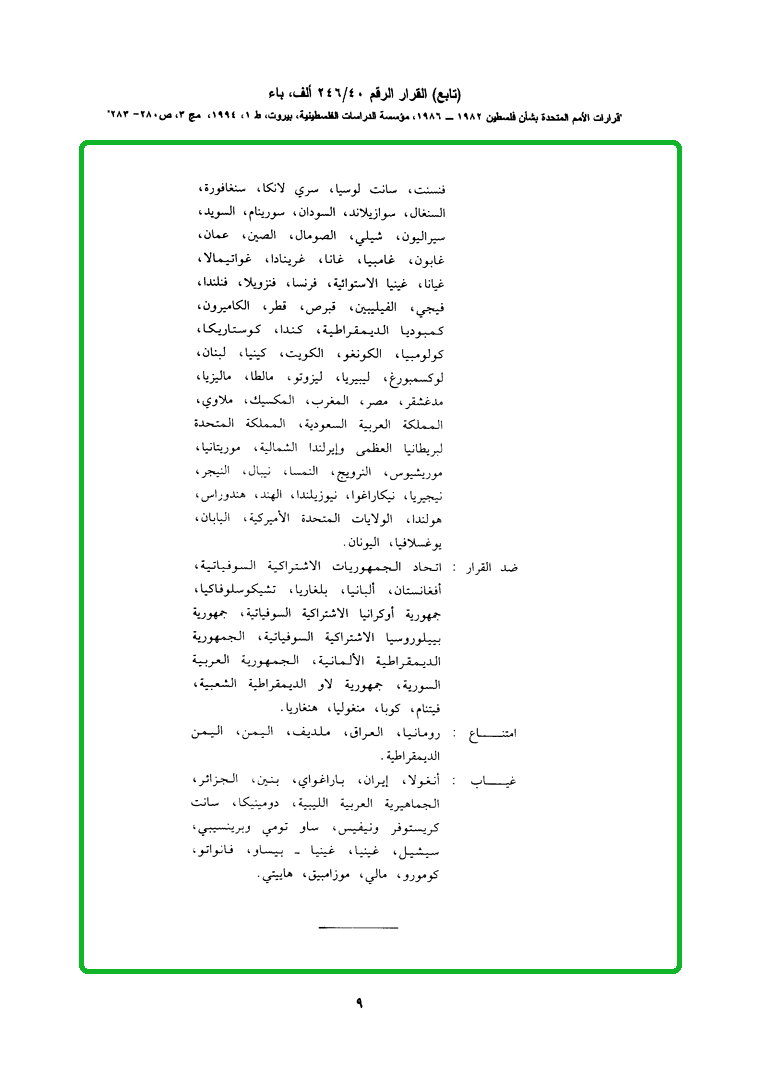 (تابع) القرار الرقم ٢٤٦/٤٠ ألف، باء
"قرارات الأمم المتحدة بشأن فلسطين ١٩٨٢ ــ ١٩٨٦، مؤسسة الدراسات الفلسطينية، بيروت، ط ١، ١٩٩٤، مج ٣، ص٢٨٠- ٢٨٣"
فنسنت، سانت لوسيا، سري لانكا، سنغافورة،
السنغال، سوازيلاند، السودان، سورينام، السويد،
سيراليون، شيلي، الصومال، الصين، عمان،
غابون، غامبيا، غانا، غرينادا، غواتيمالا،
غيانا، غينيا الاستوائية، فرنسا، فنزويلا، فنلندا،
فيجي، الفيليبين، قبرص، قطر، الكاميرون،
كمبوديا الديمقراطية، كندا، كوستاريكا،
كولومبيا، الكونغو، الكويت، كينيا، لبنان،
لوكسمبورغ، ليبيريا، ليزوتو، مالطا، ماليزيا،
مدغشقر، مصر، المغرب، المكسيك، ملاوي،
المملكة العربية السعودية، المملكة المتحدة
لبريطانيا العظمى وإيرلندا الشمالية، موريتانيا،
موريشيوس، النرويج، النمسا، نيبال، النيجر،
نيجيريا، نيكاراغوا، نيوزيلندا، الهند، هندوراس،
هولندا، الولايات المتحدة الأميركية، اليابان،
يوغسلافيا، اليونان.
ضد القرار : اتحاد الجمهوريات الاشتراكية السوفياتية،
أفغانستان، ألبانيا، بلغاريا، تشيكوسلوفاكيا،
جمهورية أوكرانيا الاشتراكية السوفياتية، جمهورية
بييلوروسيا الاشتراكية السوفياتية، الجمهورية
الديمقراطية الألمانية، الجمهورية العربية
السورية، جمهورية لاو الديمقراطية الشعبية،
فيتنام، كوبا، منغوليا، هنغاريا.
امتنـــــاع : رومانيا، العراق، ملديف، اليمن، اليمن
الديمقراطية.
غيـــــاب : أنغولا، إيران، باراغواي، بنين، الجزائر،
الجماهيرية العربية الليبية، دومينيكا، سانت
كريستوفر ونيفيس، ساو تومي وبرينسيبي،
سيشيل، غينيا، غينيا ـ بيساو، فانواتو،
كومورو، مالي، موزامبيق، هاييتي.
٩